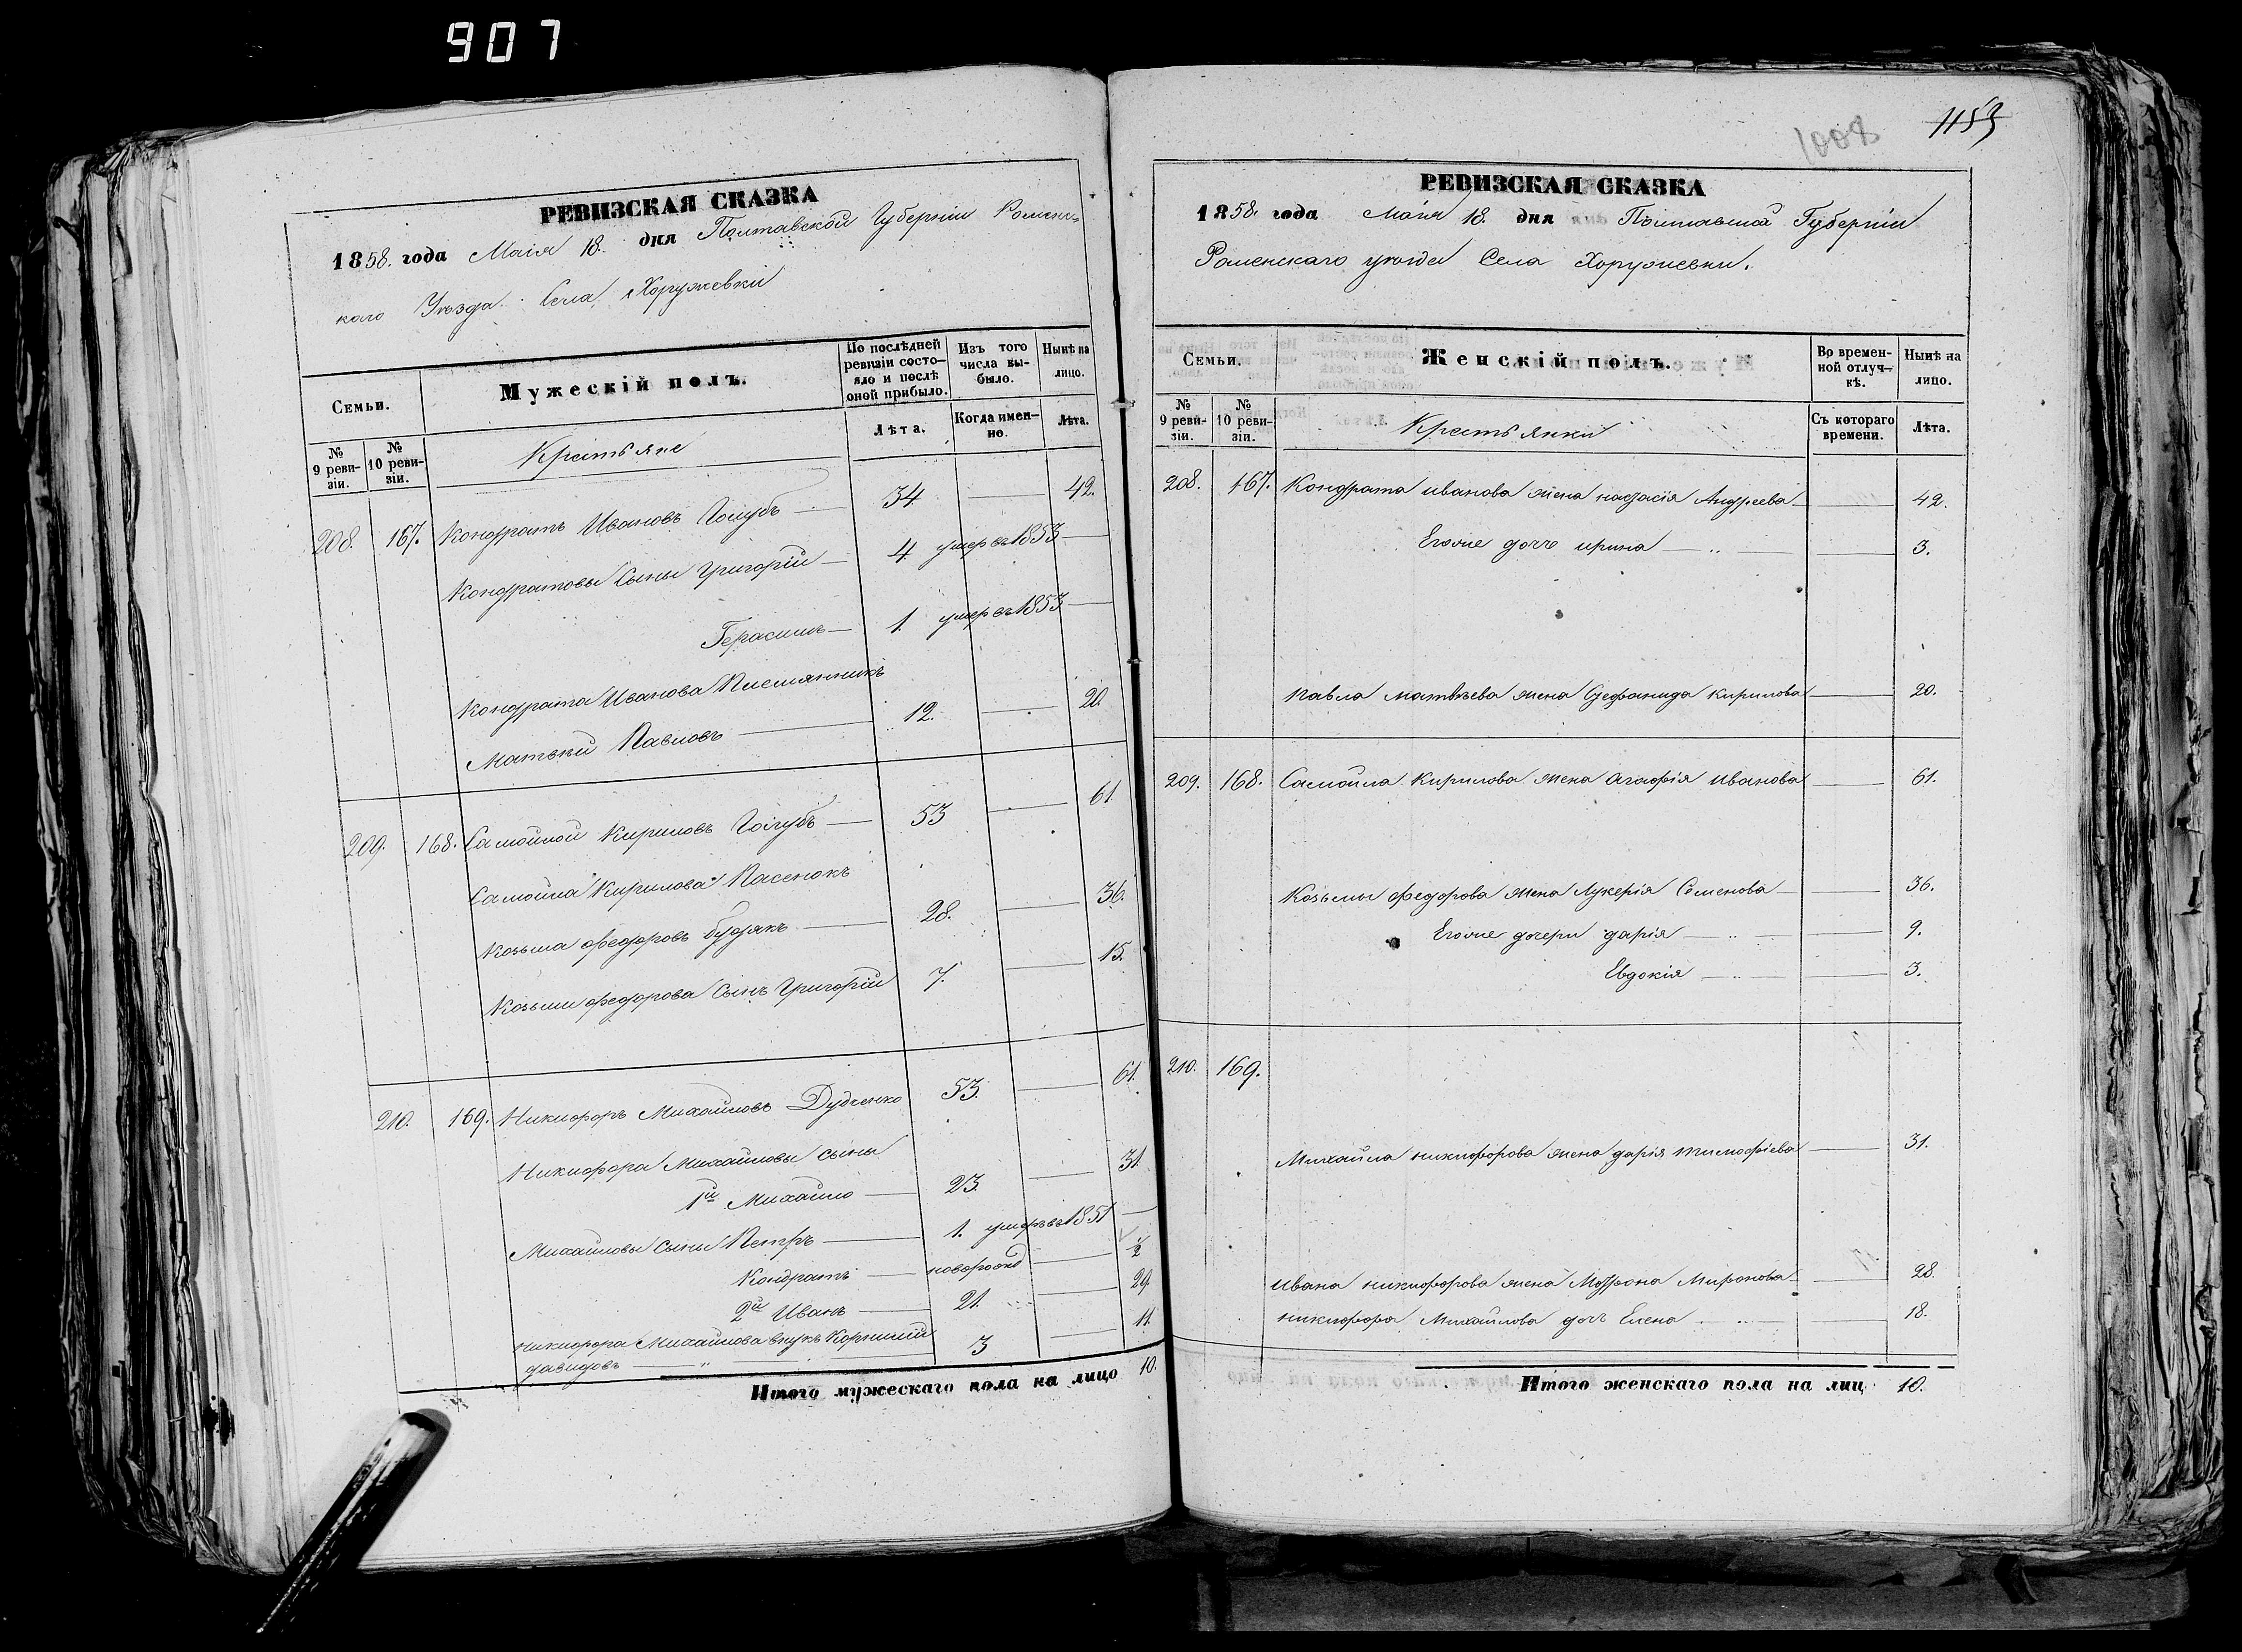 907
РЕВИЗСКАЯ СКАЗКА
1858. года Маія 18. дня Полтавской Губерніи Роменс-
каго Уѣзда. Села Хоружевки
Семьи.
Мужескій полъ.
По послѣдней ревизіи состо-яло и послѣ оной прибыло.
Изъ того числа вы-было.
Нынѣ на лицо.
№ 9 реви-зіи.
№ 10 реви-зіи.
Крестьяне
Лѣта.
Когда имен-но.
Лѣта.
208. 167. Кондратъ Ивановъ Голубъ — 34 — 42.
Кондратовы Сыны Григорій — 4 умеръ въ 1853 —
Герасимъ — 1. умеръ въ 1853 —
Кондрата Иванова Племянникъ
Матвѣй Павловъ — 12. — 20.
209. 168. Самойло Кириловъ Голубъ — 53 — 61.
Самойла Кирилова Пасенокъ
Козьма Федоровъ Будякъ — 28. — 36.
Козьми Федорова Сынъ Григорій 7. — 15.
210. 169. Никифоръ Михайловъ Дудченко 53. — 61.
Никифора Михайловы сыны
1й Михайло — 23. — 31.
Михайловы сыны Петръ — 1. умеръ въ 1851 —
Кондратъ — новорожд — ½
2й Иванъ — 21. — 29.
Никифора Михайлова внукъ Корнилій
давидовъ — " — 3 — 11.
Итого мужескаго пола на лицо 10.
1008 1153
РЕВИЗСКАЯ СКАЗКА
1858. года Маія 18. дня Полтавской Губерніи
Роменскаго уѣзда Села Хоружевки.
Семьи.
Женскій полъ.
Во времен-ной отлуч-кѣ.
Нынѣ на лицо.
№ 9 реви-зіи.
№ 10 реви-зіи.
Крестьянки
Съ котораго времени.
Лѣта.
208. 167. Кондрата иванова жена настасія Андреева — 42.
Егоже дочь ирина — 3.
Павла матвѣева жена Стефанида кирилова — 20.
209. 168. Самойла Кирилова жена агафія иванова — 61.
Козьмы федорова жена Лукерія Семенова — 36.
Егоже дочери дарія — 9.
Евдокія — 3.
210. 169.
Михайла никифорова жена дарія тимофіева — 31.
Ивана никифорова жена Мотрона Миронова — 28.
никифора Михайлова дочь Елена — 18.
Итого женскаго пола на лиц 10.